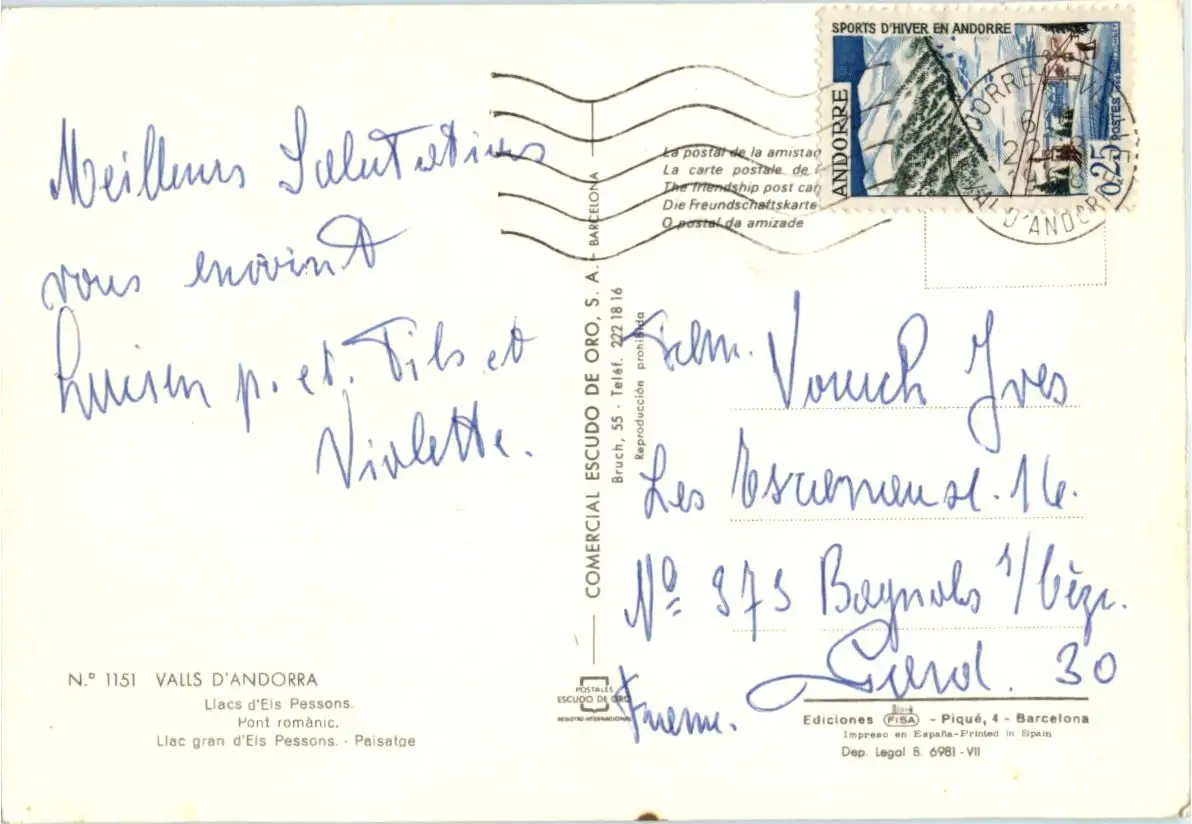 Meilleurs Salutations
vous envoient
Lucien p. et. Fils et
Violette.
N.º 1151 VALLS D'ANDORRA
Llacs d'Els Pessons.
Pont romànic.
Llac gran d'Els Pessons. - Paisatge
COMERCIAL ESCUDO DE ORO, S. A. - BARCELONA
Bruch, 55 - Teléf. 222 18 16
Reproducción prohibida
POSTALES
ESCUDO DE ORO
REGISTRO INTERNACIONAL
La postal de la amistad
La carte postale de l
The friendship post car
Die Freundschaftskarte
O postal da amizade
SPORTS D'HIVER EN ANDORRE
ANDORRE
POSTES
0,25
VAL D'ANDORRE
Fam. Vouch Yves
Les 16.
Nº 373 Bagnols s/Cèze.
Gard. 30
France.
Ediciones FISA - Piqué, 4 - Barcelona
Impreso en España-Printed in Spain
Dep. Legal B. 6981 - VII